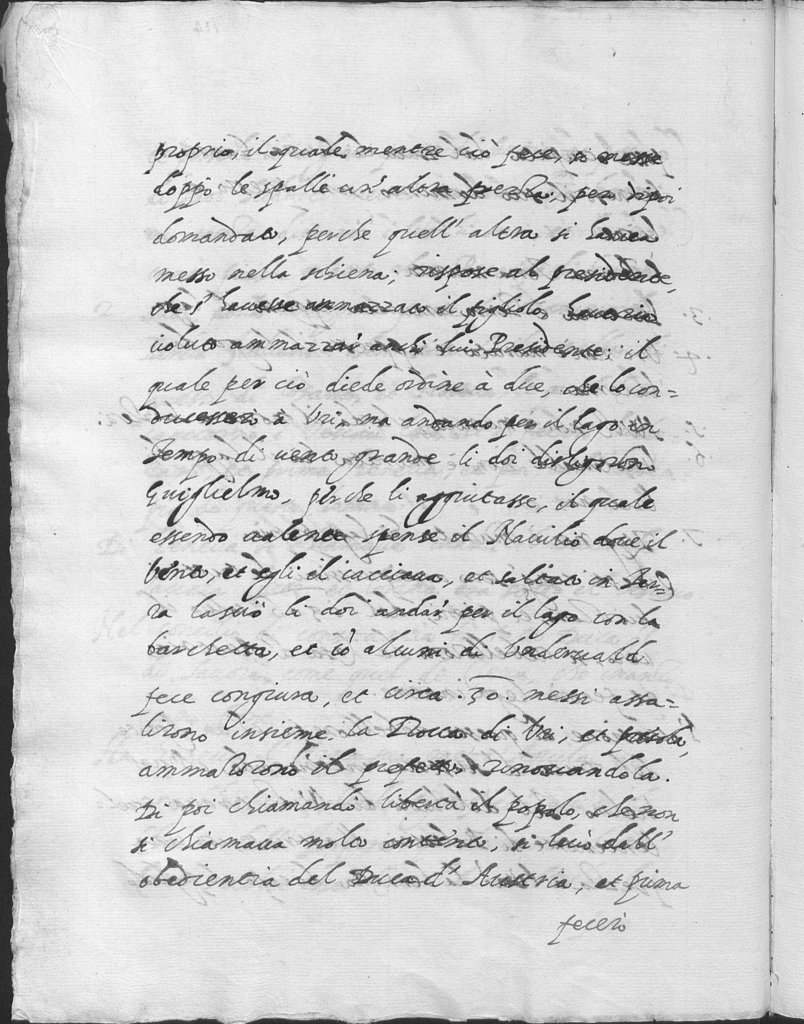 proprio, il quale mentre ciò fece, si messe
doppò le spalle un' altra frezza, per dipoi
domandato, perche quell' altra si haveva
messo nella schiena; rispose al presidente,
che s' havesse ammazzato il figliolo, haveria
voluto ammazzar' anch' lui Presidente; il
quale per ciò diede ordine à due, che lo con=
ducessero à Uri, ma andando per il lago in
tempo di vento grande li doi disligorono
Guiglielmo, perche li aggiutasse, il quale
essendo valente spense il Navilio dove il
vento, et egli il cacciava, et saltato in Ter=
ra lasciò li doi andar' per il lago con la
barchetta, et cò alcuni di Underwald
fece congiura, et circa .30. messi assa=
lirono insieme la Rocca di Uri, et presola,
ammazorono il prefetto, rinovandola.
Di poi chiamando libertà il popolo, che non
si chiamava molto contento, si levò dall'
obedientia del Duca d' Austria, et prima
fecero